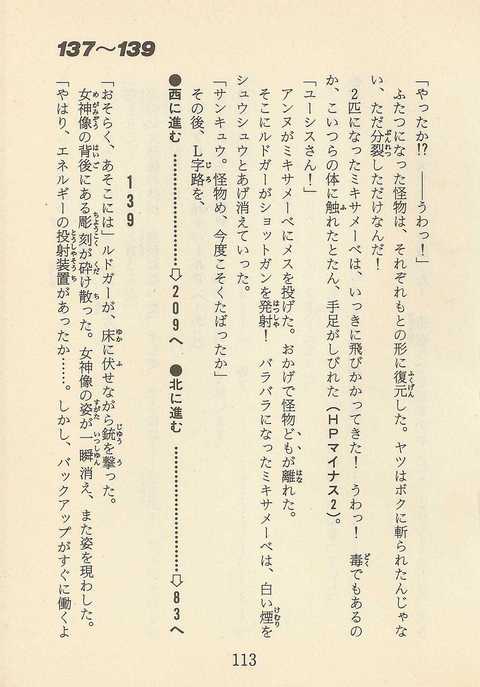 137〜139
「やったか!? ――うわっ！」
ふたつになった怪物は、それぞれもとの形に復元した。ヤツはボクに斬られたんじゃな
い、ただ分裂しただけなんだ！
2匹になったミキサメーベは、いっきに飛びかかってきた！ うわっ！ 毒でもあるの
か、こいつらの体に触れたとたん、手足がしびれた（HPマイナス2）。
「ユーシスさん！」
アンヌがミキサメーベにメスを投げた。おかげで怪物どもが離れた。
そこにルドガーがショットガンを発射！ バラバラになったミキサメーベは、白い煙を
シュウシュウとあげ消えていった。
「サンキュウ。怪物め、今度こそくたばったか」
その後、L字路を、
●西に進む ………………⇨209へ ●北に進む ………………⇨83へ
139
「おそらく、あそこには」ルドガーが、床に伏せながら銃を撃った。
女神像の背後にある彫刻が砕け散った。女神像の姿が一瞬消え、また姿を現わした。
「やはり、エネルギーの投射装置があったか……。しかし、バックアップがすぐに働くよ
113